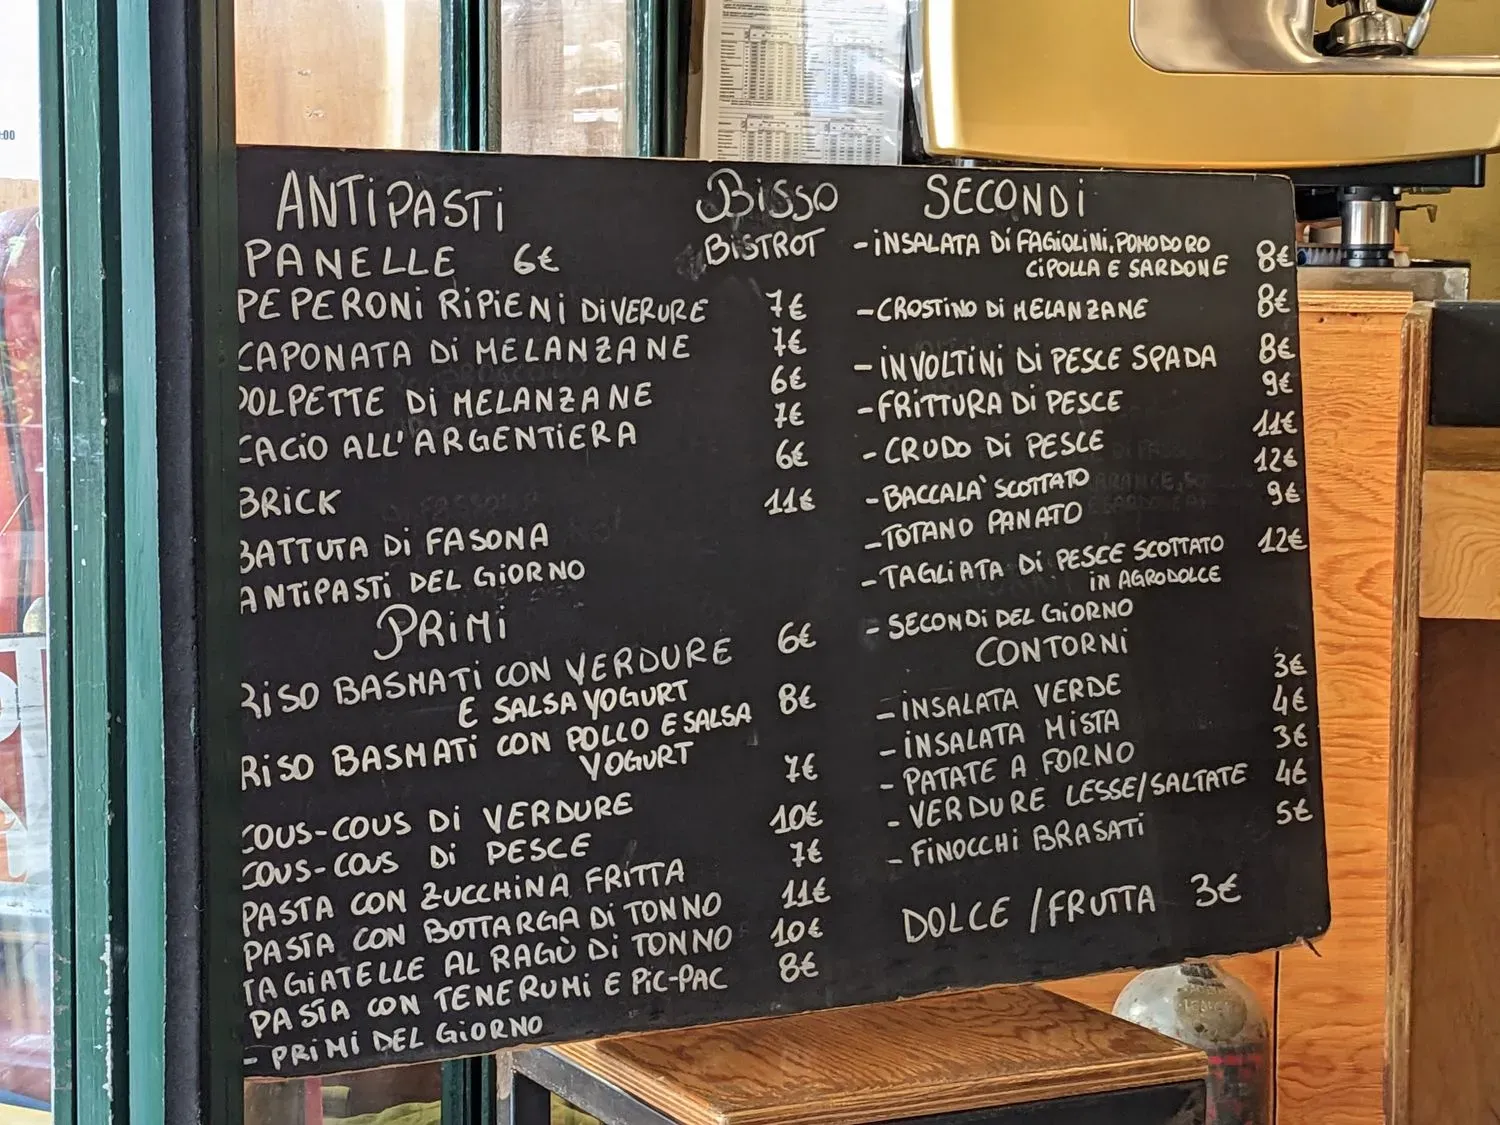 ANTIPASTI
PANELLE 6€
PEPERONI RIPIENI DI VERURE 7€
CAPONATA DI MELANZANE 7€
POLPETTE DI MELANZANE 6€
CACIO ALL'ARGENTIERA 7€
BRICK 6€
BATTUTA DI FASONA 11€
ANTIPASTI DEL GIORNO
PRIMI
RISO BASMATI CON VERDURE 6€
E SALSA YOGURT
RISO BASMATI CON POLLO E SALSA 8€
YOGURT
COUS-COUS DI VERDURE 7€
COUS-COUS DI PESCE 10€
PASTA CON ZUCCHINA FRITTA 7€
PASTA CON BOTTARGA DI TONNO 11€
TAGIATELLE AL RAGÙ DI TONNO 10€
PASTA CON TENERUMI E PIC-PAC 8€
- PRIMI DEL GIORNO
BISSO
BISTROT
SECONDI
- INSALATA DI FAGIOLINI, POMODORO
CIPOLLA E SARDONE 8€
- CROSTINO DI MELANZANE 8€
- INVOLTINI DI PESCE SPADA 8€
- FRITTURA DI PESCE 9€
- CRUDO DI PESCE 11€
- BACCALA' SCOTTATO 12€
- TOTANO PANATO 9€
- TAGLIATA DI PESCE SCOTTATO 12€
IN AGRODOLCE
- SECONDI DEL GIORNO
CONTORNI
- INSALATA VERDE 3€
- INSALATA MISTA 4€
- PATATE A FORNO 3€
- VERDURE LESSE/SALTATE 4€
- FINOCCHI BRASATI 5€
DOLCE /FRUTTA 3€